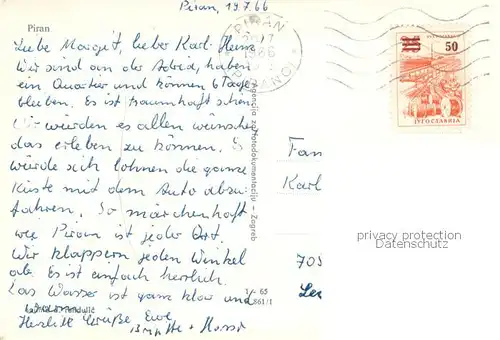 Piran, 19.7.66
Piran
Liebe Margit, lieber Karl-Heinz
Wir sind an der Adria, haben
ein Quartier und können 6 Tage
bleiben. Es ist traumhaft schön.
Wir würden es allen wünschen
das erleben zu können. Es
würde sich lohnen die ganze
Küste mit dem Auto abzu-
fahren. So märchenhaft
wie Piran ist jeder Ort.
Wir klappern jeden Winkel
ab. Es ist einfach herrlich.
Das Wasser ist ganz klar und
Herzliche Grüße Eure
PIRAN
PIRANO
50
JUGOSLAVIJA
Agencija za fotodokumentaciju - Zagreb
Fam
Karl
705
privacy protection
Datenschutz
65
861/1